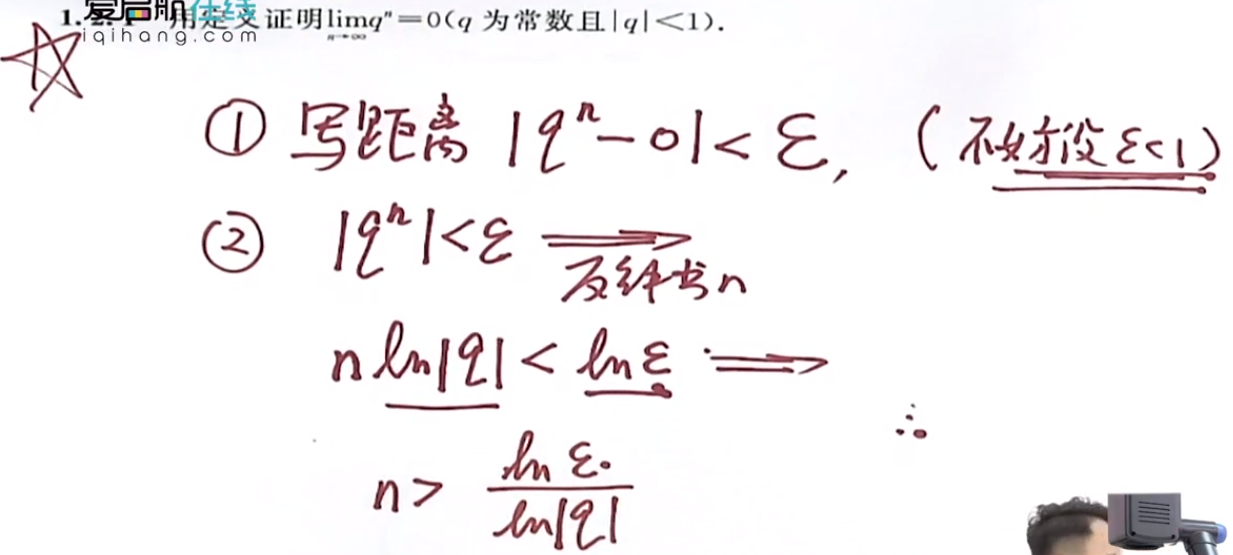 1.2.1 用定义证明lim_{n→∞} qⁿ=0(q 为常数且|q|<1).
爱启航在线
iqihang.com
① 写距离 |qⁿ-0|< ε, (不妨设ε<1)
② |qⁿ|<ε ⟹
反解出n
n ln|q| < ln ε ⟹
∴
n> ln ε / ln|q|